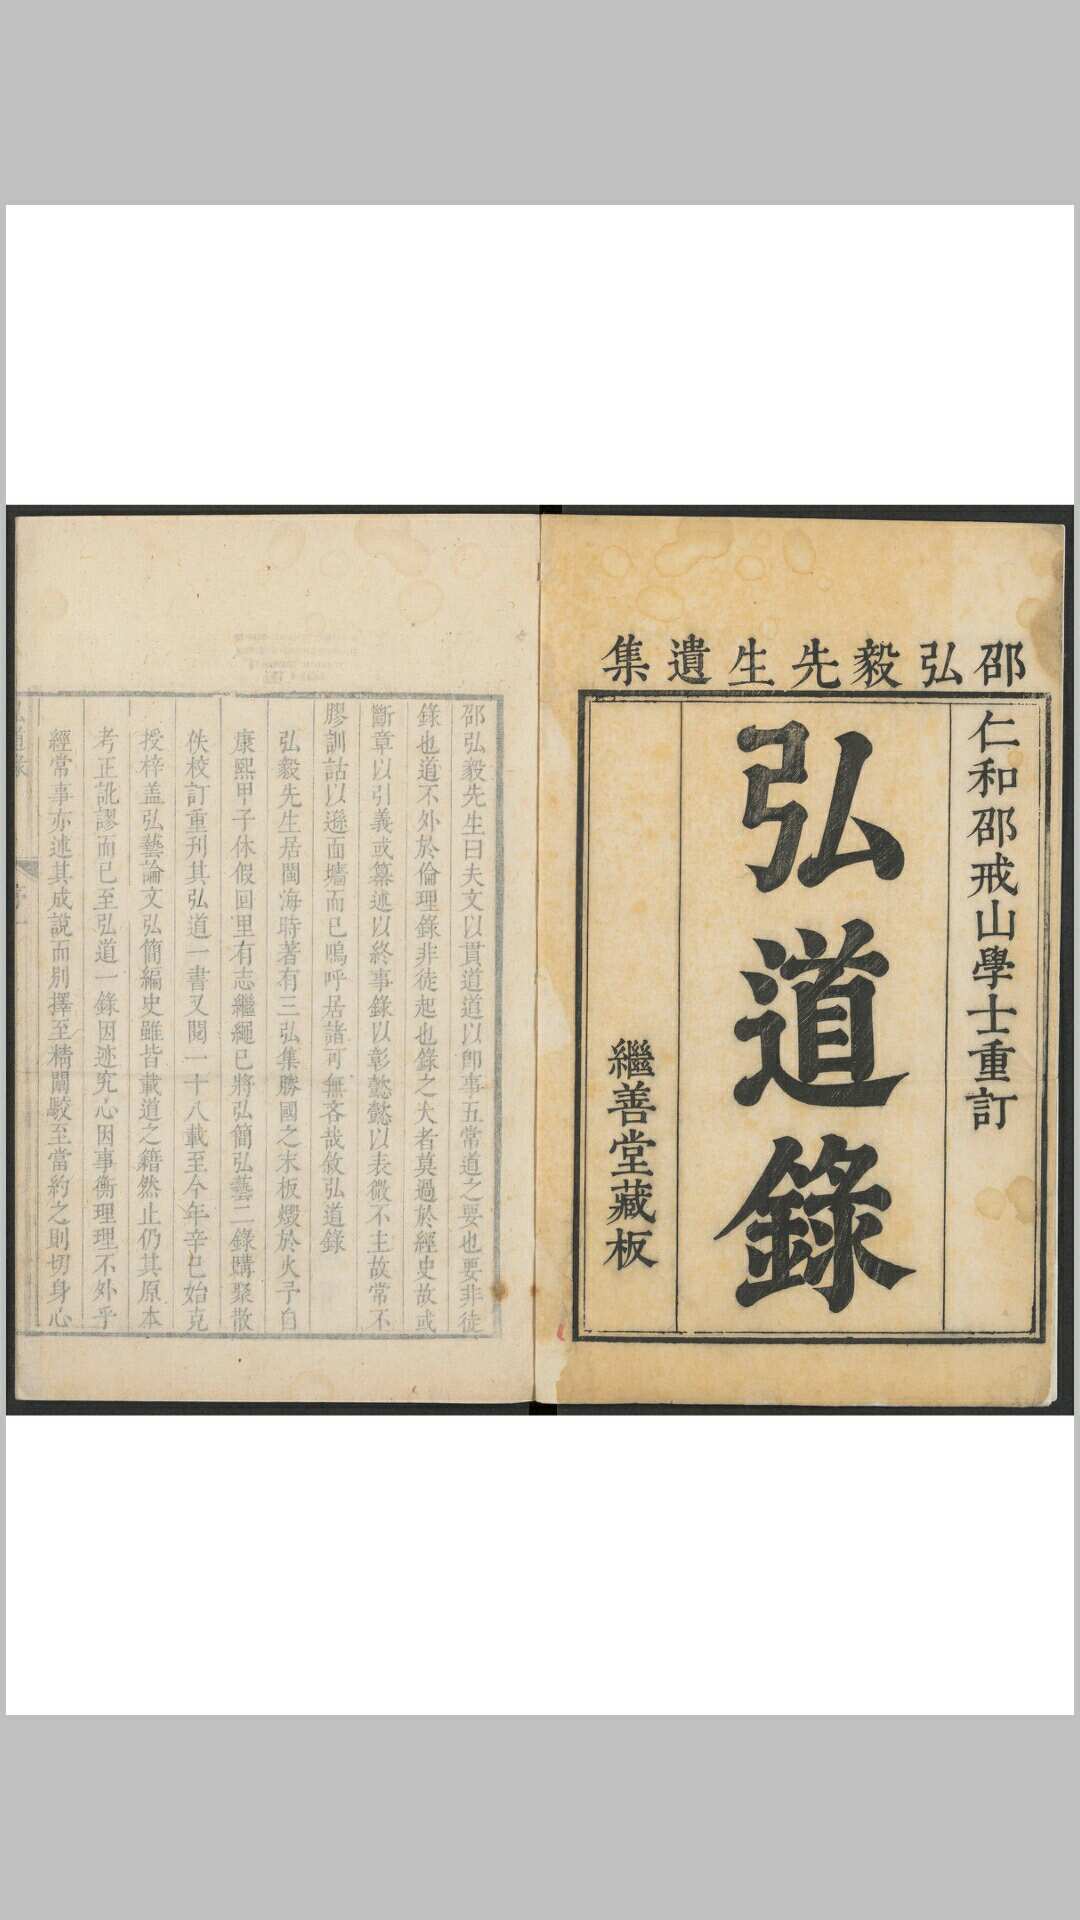 邵弘毅先生遺集
仁和邵戒山學士重訂
弘道錄
繼善堂藏板
邵弘毅先生曰夫文以貫道道以即事五常道之要也要非徒
錄也道不外於倫理錄非徒起也錄之大者莫過於經史故或
斷章以引義或纂述以終事錄以彰懿懿以表微不主故常不
膠訓詁以遜面墻而已嗚呼居諸可無吝哉敘弘道錄
弘毅先生居閩海時著有三弘集勝國之末板燬於火予自
康熙甲子休假回里有志繼繩已將弘簡弘藝二錄購聚散
佚校訂重刊其弘道一書又閱一十八載至今年辛巳始克
授梓盖弘藝論文弘簡編史雖皆載道之籍然止仍其原本
考正訛謬而已至弘道一錄因迹究心因事衡理理不外乎
經常事亦述其成說而別擇至精闡駮至當約之則切身心
弘道錄